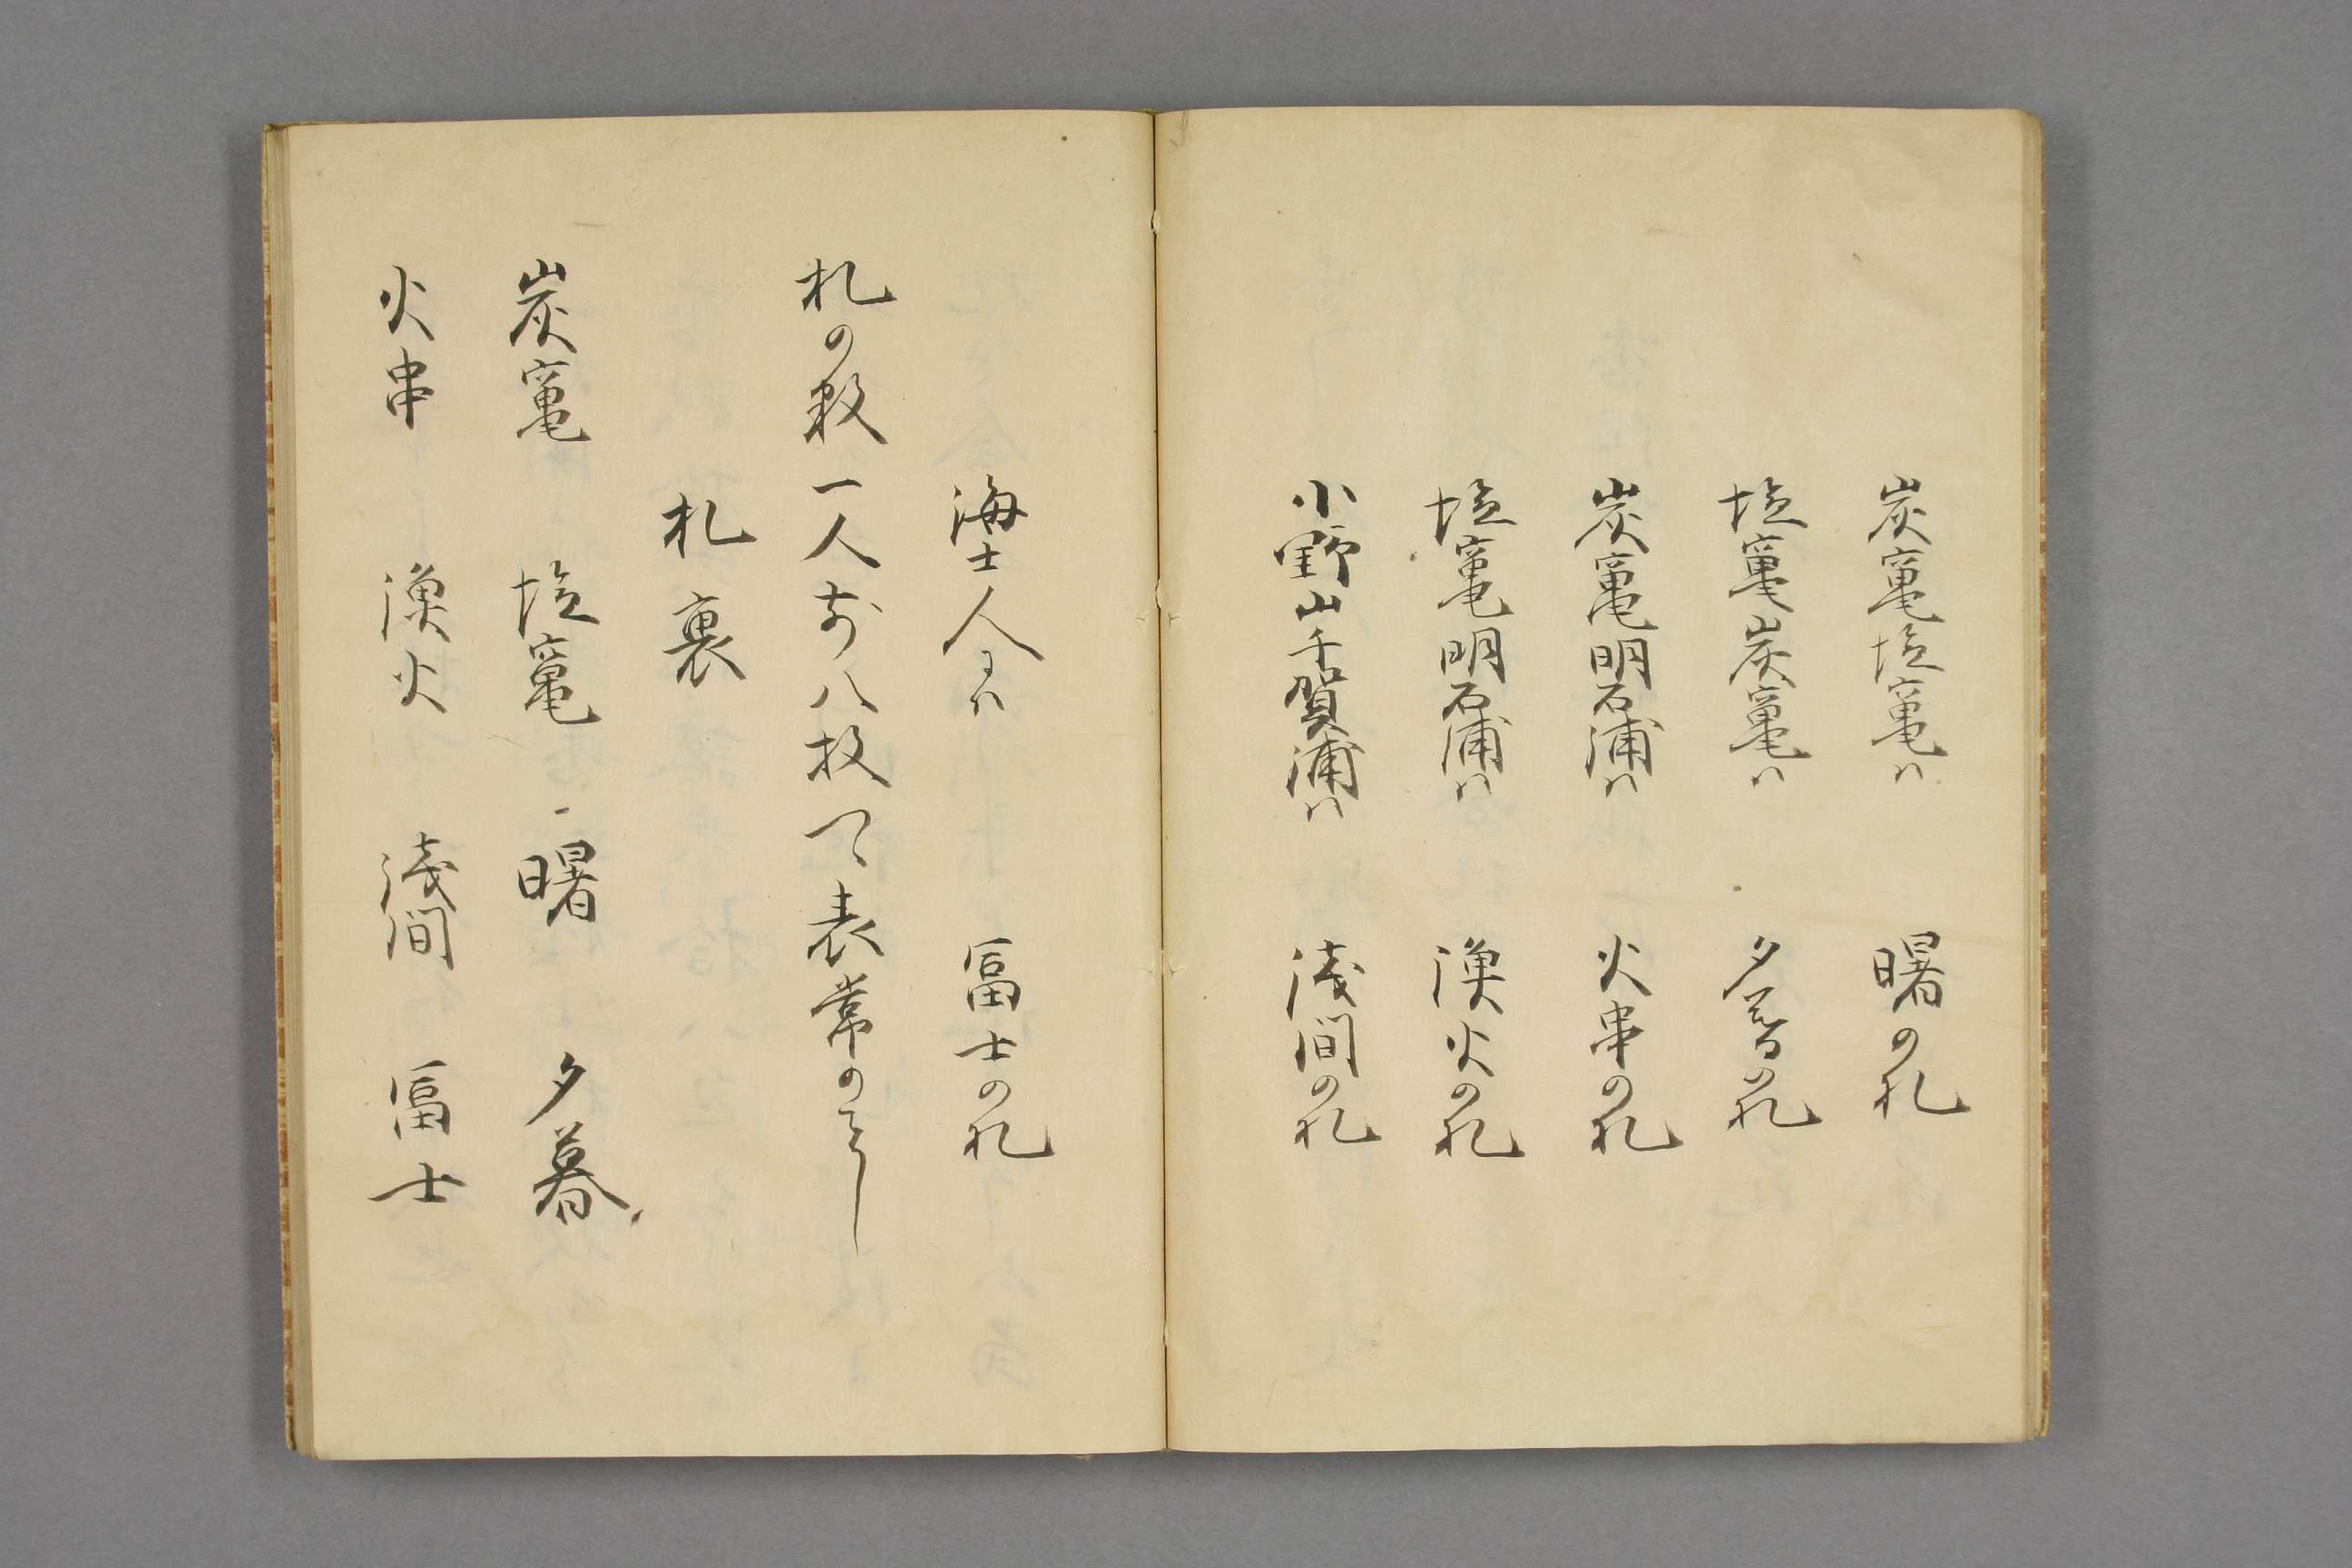 炭竃塩竃ハ　曙の札
塩竃炭竃ハ　夕暮の札
炭竃明石浦ハ　火串の札
塩竃明石浦ハ　漁火の札
小野山千賀浦ハ　浅間の札
海士人ニハ　冨士の札
札の数一人前八枚つゝ表常のことし
札裏
炭竃　塩竃　曙　夕暮
火串　漁火　浅間　冨士